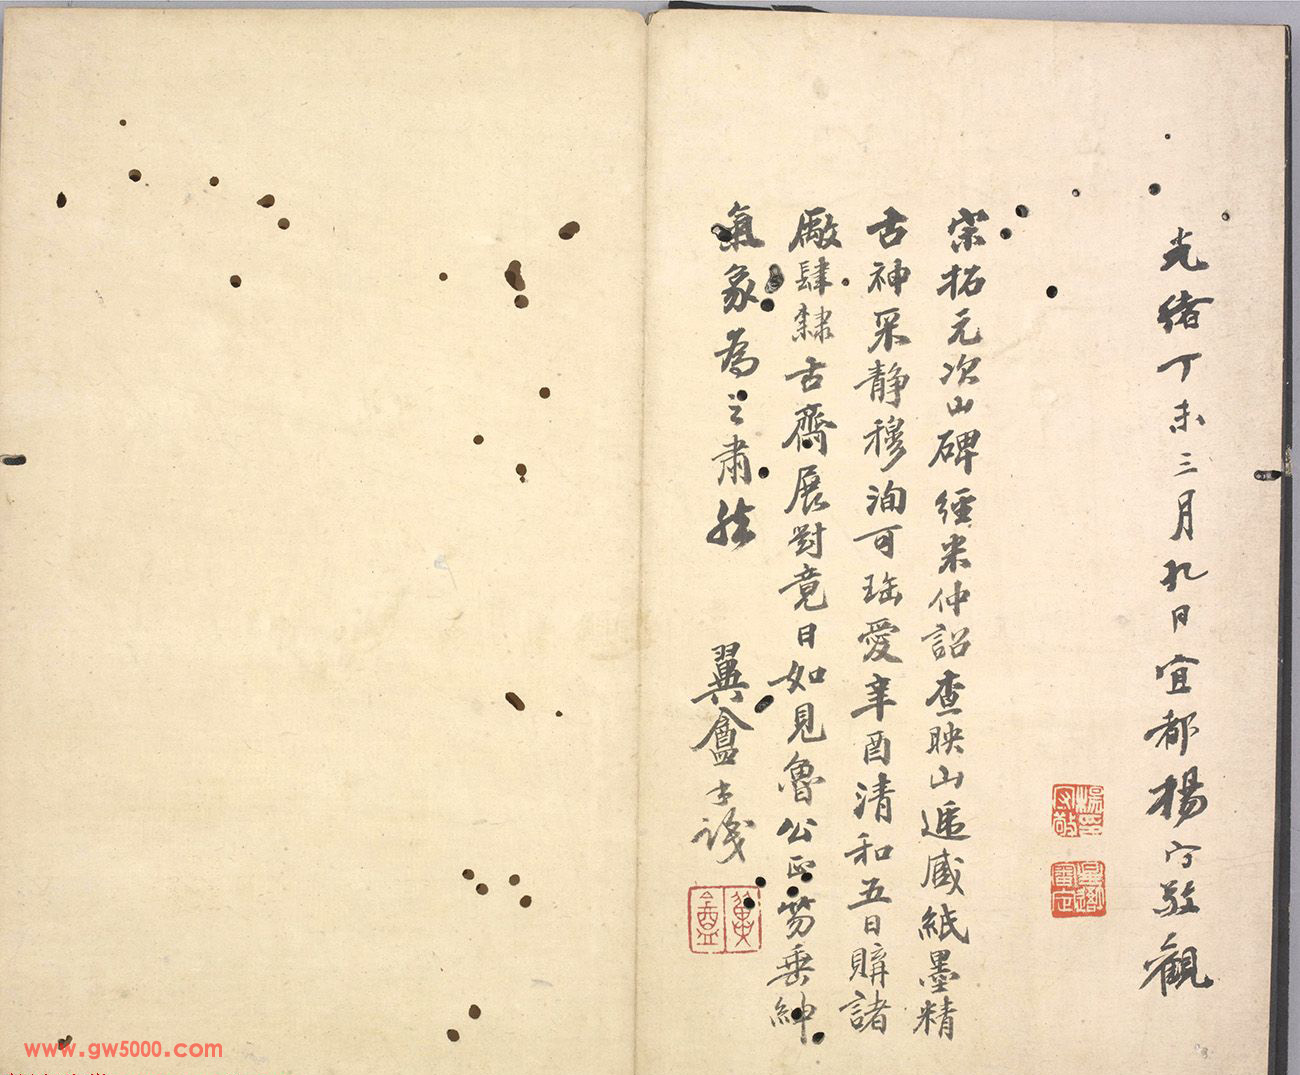 光緒丁未三月九日宜都楊守敬觀
楊印守敬
宋拓元次山碑經米仲詔查映山遞臧紙墨精
古神采静穆洵可珤愛辛酉清和五日購諸
廠肆隸古齋展對竟日如見魯公正笏垂紳
氣象為之肅然
翼盦識
翼盦
www.gw5000.com